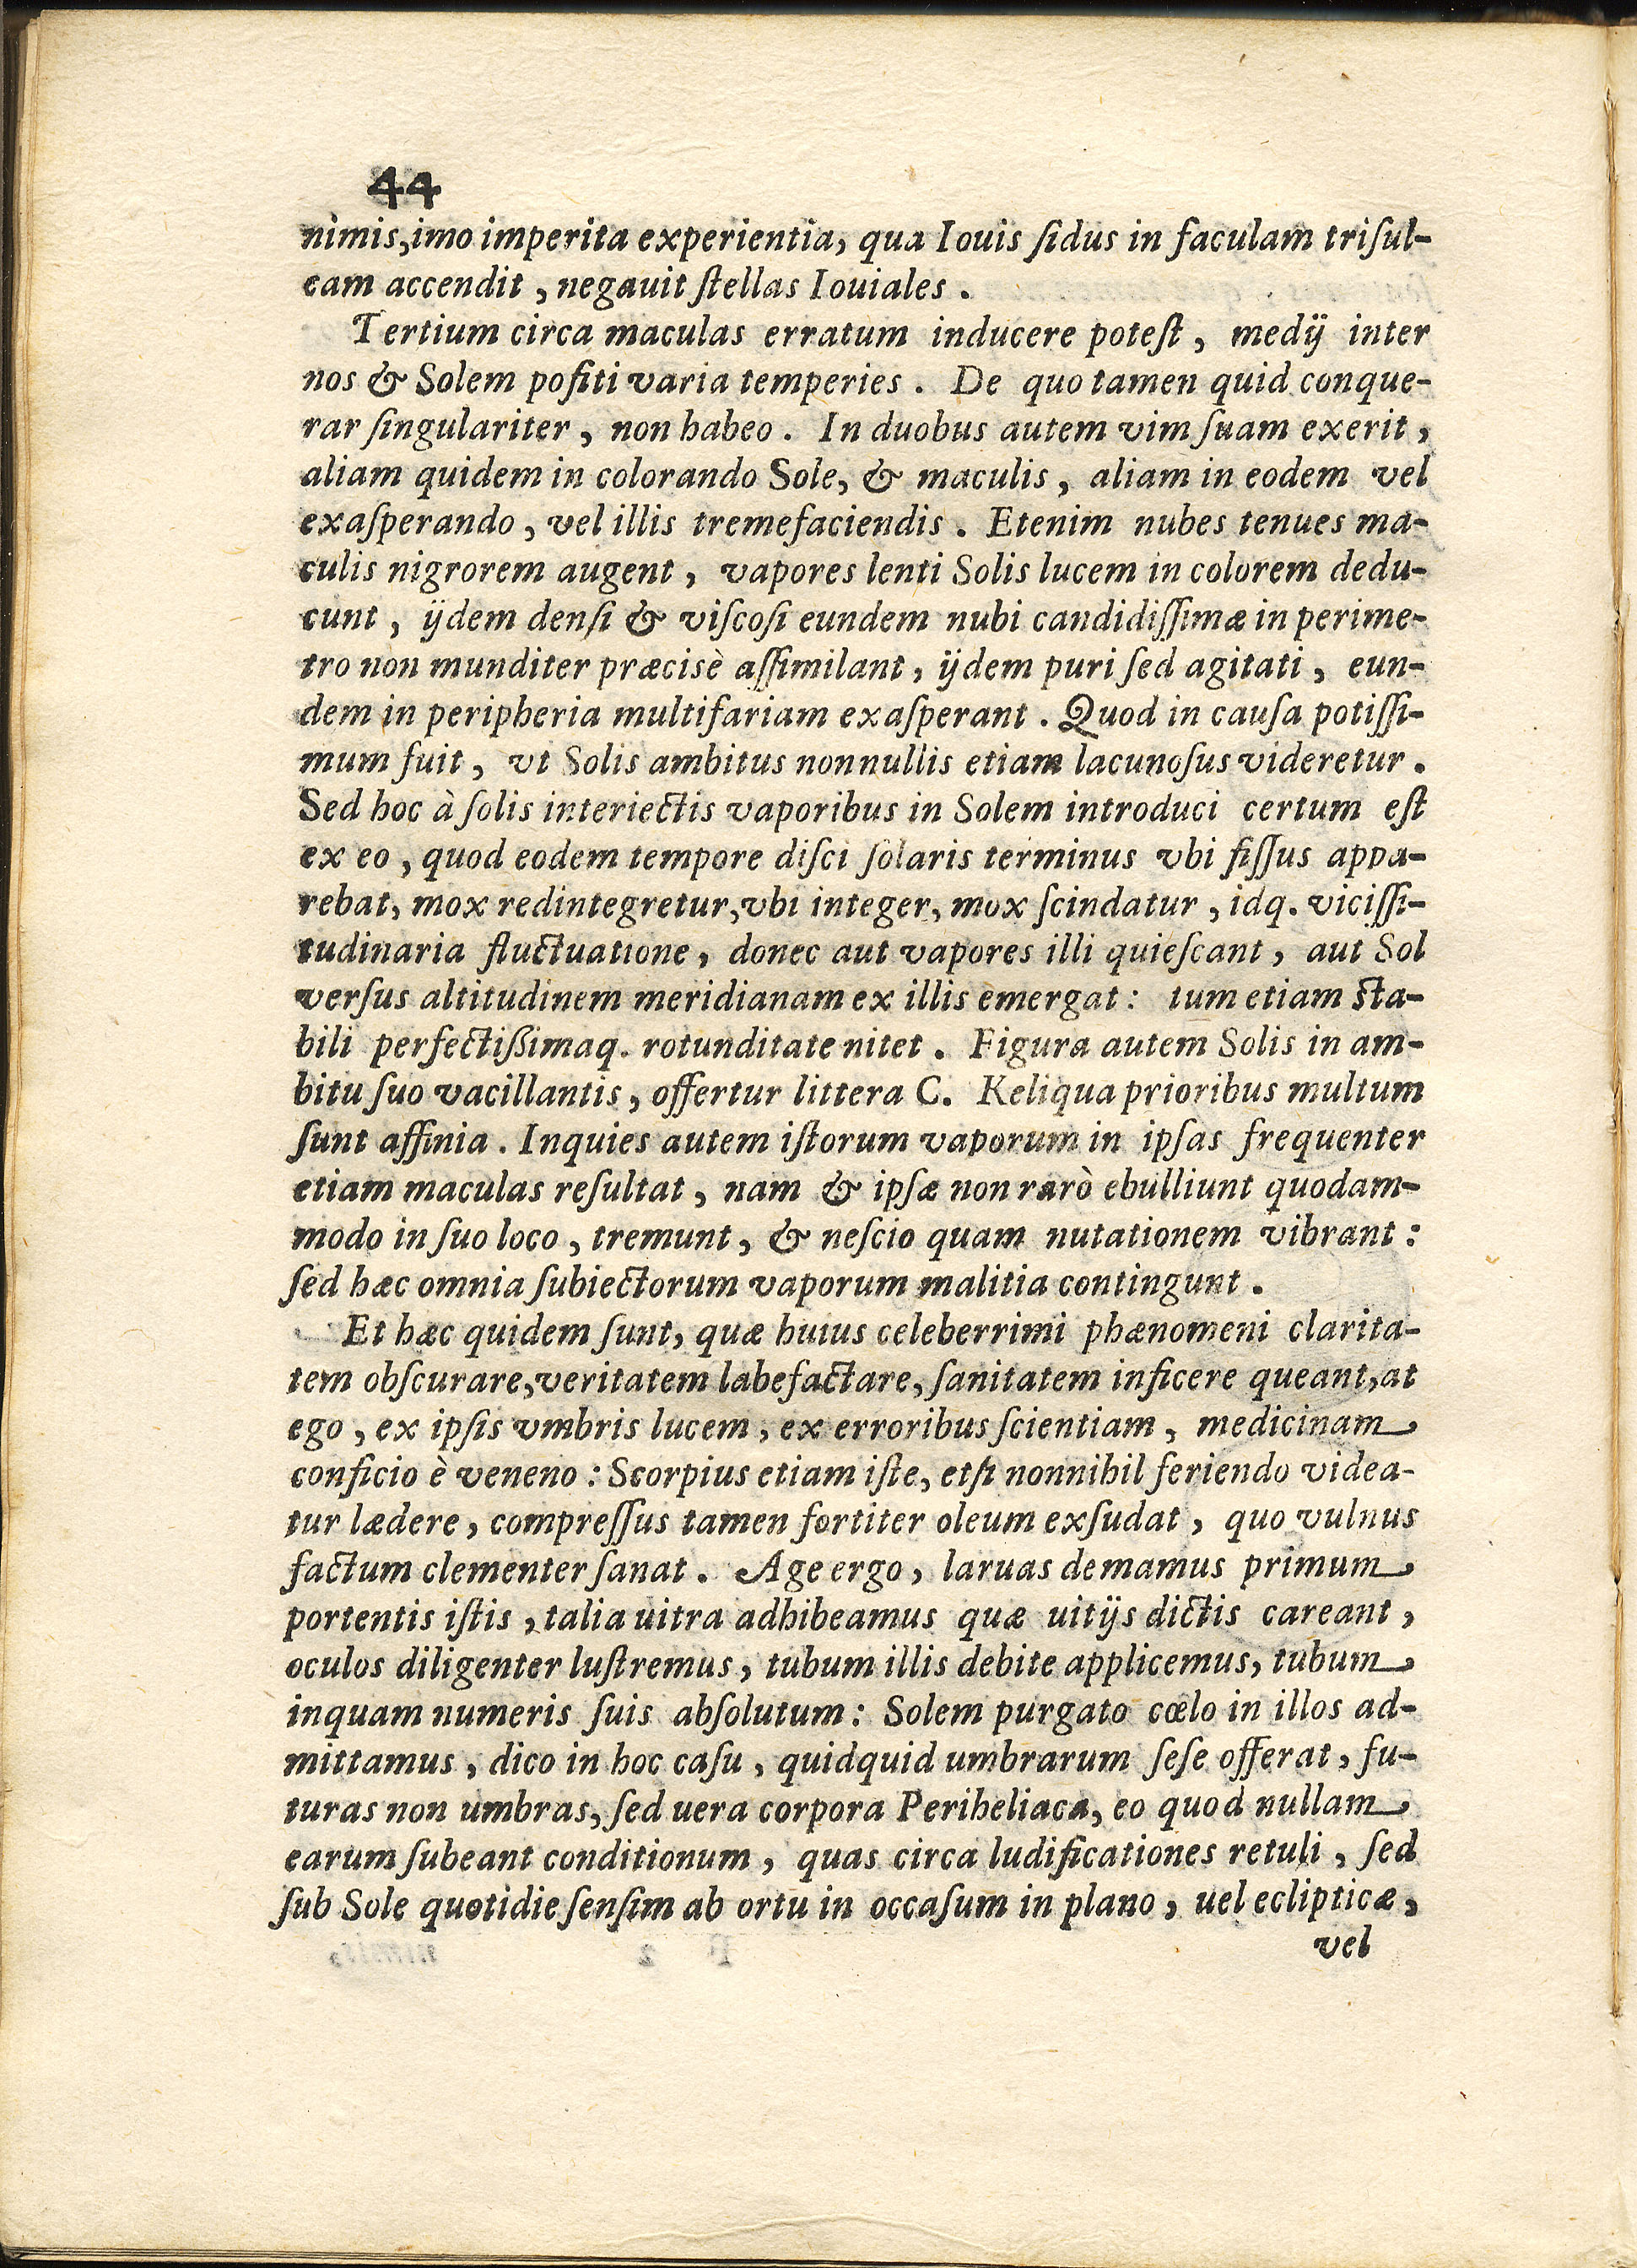 44
nimis, imo imperita experientia, qua Iouis ſidus in faculam triſul-
cam accendit, negauit ſtellas Iouiales.
Tertium circa maculas erratum inducere poteſt, medij inter
nos & Solem poſiti varia temperies. De quo tamen quid conque-
rar ſingulariter, non habeo. In duobus autem vim ſuam exerit,
aliam quidem in colorando Sole, & maculis, aliam in eodem vel
exaſperando, vel illis tremefaciendis. Etenim nubes tenues ma-
culis nigrorem augent, vapores lenti Solis lucem in colorem dedu-
cunt, ijdem denſi & viſcoſi eundem nubi candidiſſimæ in perime-
tro non munditer præcisè aſſimilant, ijdem puri ſed agitati, eun-
dem in peripheria multifariam exaſperant. Quod in cauſa potiſſi-
mum fuit, vt Solis ambitus nonnullis etiam lacunoſus videretur.
Sed hoc à ſolis interiectis vaporibus in Solem introduci certum eſt
ex eo, quod eodem tempore diſci ſolaris terminus vbi fiſſus appa-
rebat, mox redintegretur, vbi integer, mox ſcindatur, idq. viciſſi-
tudinaria fluctuatione, donec aut vapores illi quieſcant, aut Sol
verſus altitudinem meridianam ex illis emergat: tum etiam sta-
bili perfectißimaq. rotunditate nitet. Figura autem Solis in am-
bitu ſuo vacillantis, offertur littera C. Keliqua prioribus multum
ſunt affinia. Inquies autem iſtorum vaporum in ipſas frequenter
etiam maculas reſultat, nam & ipſæ non rarò ebulliunt quodam-
modo in ſuo loco, tremunt, & neſcio quam nutationem vibrant:
ſed hæc omnia ſubiectorum vaporum malitia contingunt.
Et hæc quidem ſunt, quæ huius celeberrimi phænomeni clarita-
tem obſcurare, veritatem labefactare, ſanitatem inficere queant, at
ego, ex ipſis vmbris lucem, ex erroribus ſcientiam, medicinam
conficio è veneno: Scorpius etiam iſte, etſi nonnihil feriendo videa-
tur lædere, compreſſus tamen fortiter oleum exſudat, quo vulnus
factum clementer ſanat. Age ergo, laruas demamus primum
portentis iſtis, talia uitra adhibeamus quæ uitijs dictis careant,
oculos diligenter luſtremus, tubum illis debite applicemus, tubum
inquam numeris ſuis abſolutum: Solem purgato cœlo in illos ad-
mittamus, dico in hoc caſu, quidquid umbrarum ſeſe offerat, fu-
turas non umbras, ſed uera corpora Periheliaca, eo quod nullam
earum ſubeant conditionum, quas circa ludificationes retuli, ſed
ſub Sole quotidie ſenſim ab ortu in occaſum in plano, uel eclipticæ,
vel